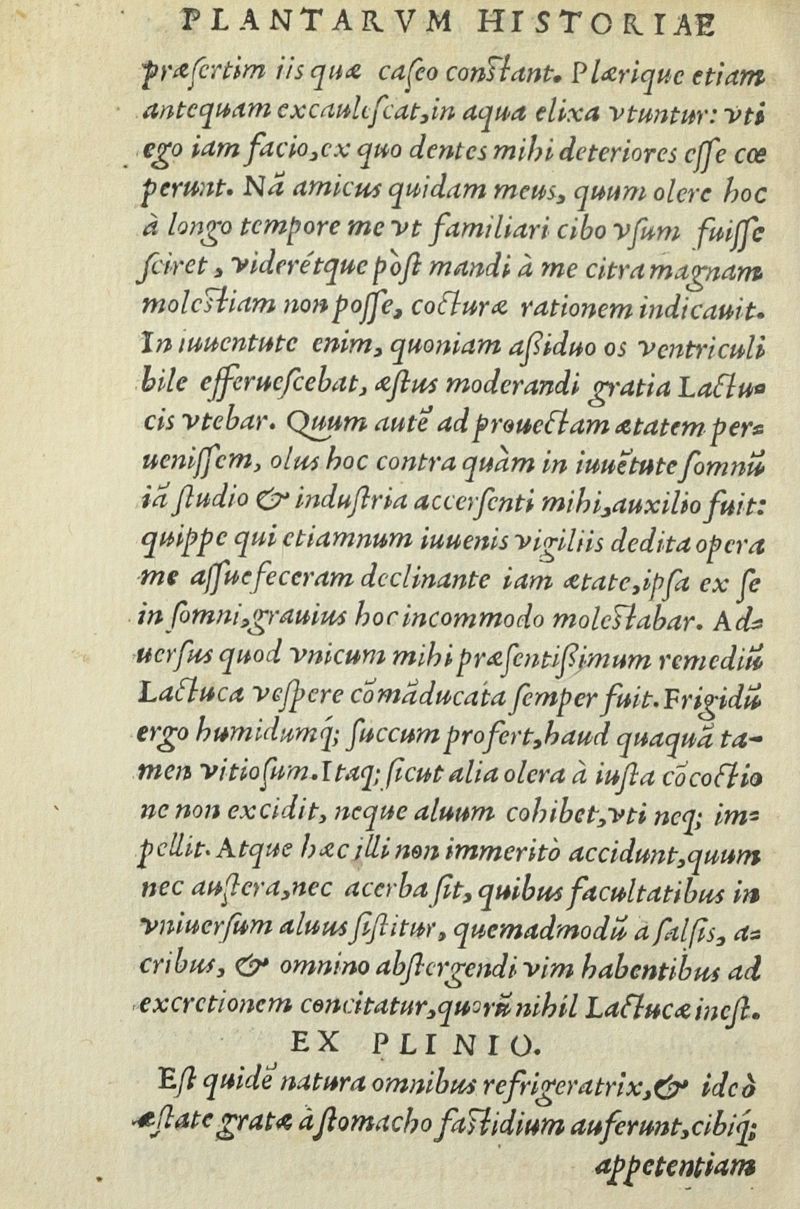 PLANTARVM HISTORIAE
præsertim iis quæ caseo constant. Plærique etiam
antequam excaulescat, in aqua elixa vtuntur: vti
ego iam facio, ex quo dentes mihi deteriores esse cœ
perunt. Nā amicus quidam meus, quum olere hoc
à longo tempore me vt familiari cibo vsum fuisse
sciret, viderétque pòst mandi à me citra magnam
molestiam non posse, cocturæ rationem indicauit.
In iuuentute enim, quoniam aßiduo os ventriculi
bile efferuescebat, æstus moderandi gratia Lactu-
cis vtebar. Quum autē ad prouectam ætatem per-
uenissem, olus hoc contra quàm in iuuētute somnū
iā studio & industria accersenti mihi, auxilio fuit:
quippe qui etiamnum iuuenis vigiliis dedita opera
me assuefeceram declinante iam ætate, ipsa ex se
in somni, grauius hoc incommodo molestabar. Ad-
uersus quod vnicum mihi præsentißimum remediū
Lactuca vespere cōmāducata semper fuit. Frigidū
ergo humidumq́; succum profert, haud quaquā ta-
men vitiosum. Itaq; sicut alia olera à iusta cōcoctio
ne non excidit, neque aluum cohibet, vti neq; im-
pellit. Atque hæc illi non immeritò accidunt, quum
nec austera, nec acerba sit, quibus facultatibus in
vniuersum aluus sistitur, quemadmodū a salsis, a-
cribus, & omnino abstergendi vim habentibus ad
excretionem concitatur, quorū nihil Lactucæ inest.
EX PLINIO.
Est quidē natura omnibus refrigeratrix, & ideò
æstate gratæ à stomacho fastidium auferunt, cibiq́;
appetentiam